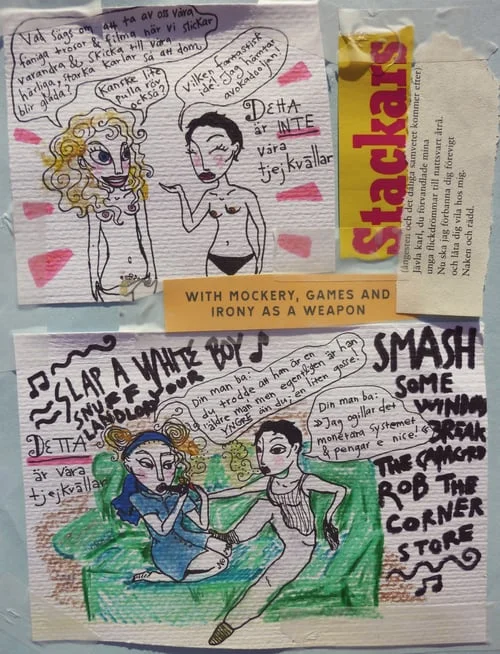 Vad sägs om att ta av oss våra
fåniga trosor & filma när vi slickar
varandra & skicka till våra
härliga, starka karlar så att dom
blir glada?
Kanske lite
rulla röv
också?
Vilken fantastisk
idé! Jag hämtar
avokadooljan!
DETTA
är INTE
våra
tjejkvällar
Stackars
(ångesten och det dåliga samvetet kommer efter)
Jävla karl, du förvandlade mina
unga flickdrömmar till nattsvart åtrå.
Nu ska jag förbanna dig för evigt
och låta dig vila hos mig.
Naken och rädd.
WITH MOCKERY, GAMES AND
IRONY AS A WEAPON
SLAP A WHITE BOY
SNIFF YOUR
LANDLORD
DETTA
är våra
tjejkvällar
Din man ba:
du trodde att han är en
äldre man men egentligen är han
YNGRE än du; en liten gosse!
Din man ba:
»Jag ogillar det
monetära systemet
& pengar e nice!«
SMASH
SOME
WINDOW
BREAK
THE
ROB THE
CORNER
STORE